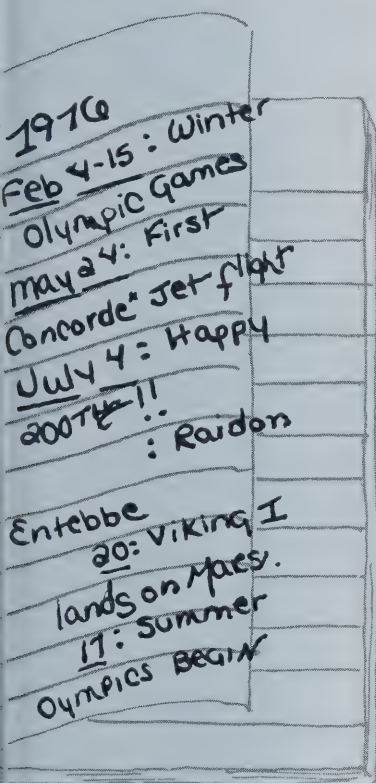 1976
Feb 4-15: Winter
Olympic Games
May 24: First
Concorde" Jet flight
July 4: Happy
200TH!!
: Raid on
Entebbe
20: Viking I
lands on Mars.
17: Summer
Olympics BEGIN